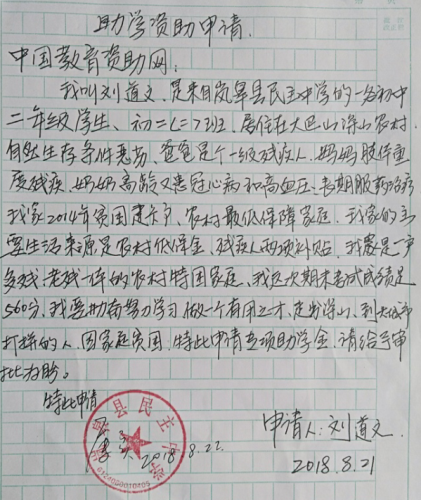 助学资助申请
中国教育资助网:
我叫刘道文,是来自岚皋县民主中学的一名初中
二年级学生、初二<二>班,居住在大巴山深山农村,
自然生存条件恶劣、爸爸是个一级残疾人、妈妈肢体重
度残疾、妈妈高龄又患冠心病和高血压、长期服药治疗
我家2014年贫困建卡户、农村最低保障家庭、我家的主
要生活来源是农村低保金、残疾人两项补贴,我家是一户
多残、老残一体的农村特困家庭、我这次期末考试成绩是
560分,我要勤奋努力学习做一个有用之才,走出深山、到大城市
打拼的人,因家庭贫困,特此申请专项助学金,请给予审
批为盼。
特此申请
申请人:刘道文
2018.8.22.
2018.8.21
岚皋县民主中学